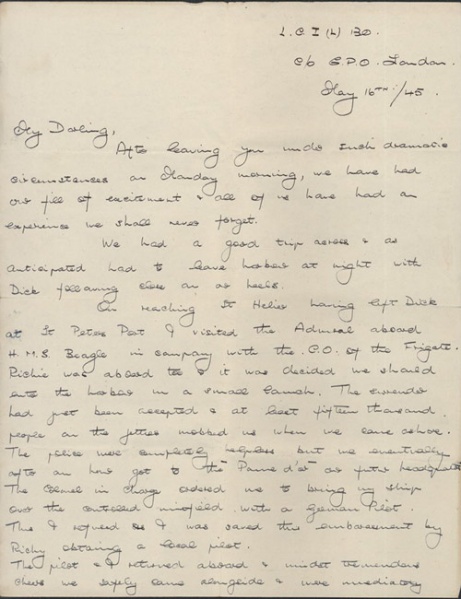 L.C.I (L) 130.
c/o G.P.O. London.
May 16TH/45.
My Darling,
After leaving you under such dramatic
circumstances on Monday morning, we have had
our fill of excitement & all of us have had an
experience we shall never forget.
We had a good trip across & as
anticipated had to leave harbour at night with
Dick following close on our heels.
On reaching St Helier having left Dick
at St Peter Port I visited the Admiral aboard
H.M.S. Beagle in company with the C.O. of the Frigate.
Richie was aboard too & it was decided we should
enter the harbour in a small launch. The surrender
had just been accepted & at least fifteen thousand
people on the jetties mobbed us when we came ashore.
The police were completely helpless but we eventually
after an hour got to the "Pomme d'or" our future headquarters
The Colonel in charge ordered me to bring my ship
over the controlled minefield with a German Pilot.
This I refused as I was saved this embarrassment by
Richy obtaining a local pilot.
The pilot & I returned aboard & amidst tremendous
cheers we safely came alongside & were immediately